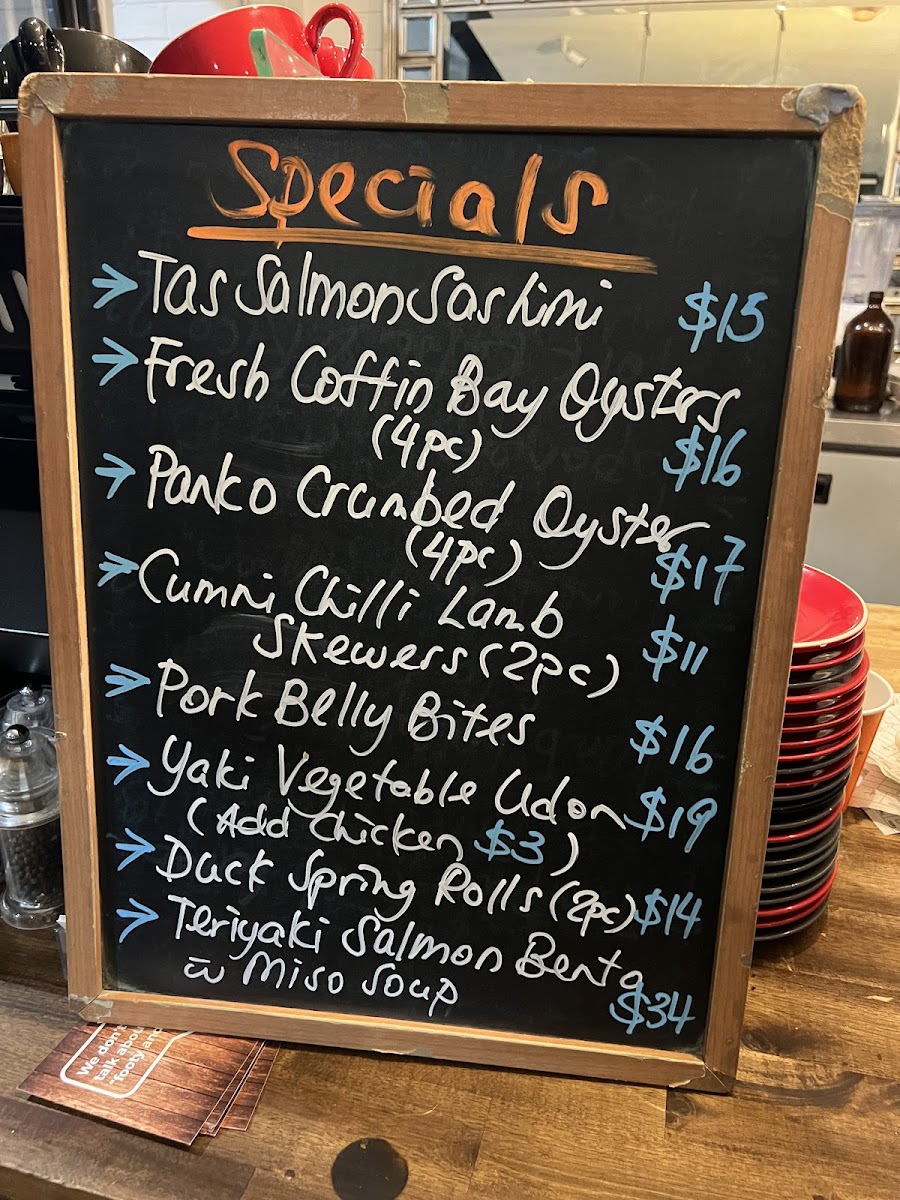 Specials
Tas Salmon Sashimi $15
Fresh Coffin Bay Oysters
(4pc) $16
Panko Crumbed Oyster
(4pc) $17
Cumni Chilli Lamb
Skewers (2pc) $11
Pork Belly Bites $16
Yaki Vegetable Udon $19
(Add Chicken $3)
Duck Spring Rolls (2pc) $14
Teriyaki Salmon Bento
w Miso Soup $34
We don't
talk about
"footy and